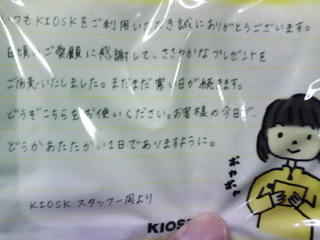 いつもKIOSKをご利用いただき誠にありがとうございます。
日頃のご愛顧に感謝して、ささやかなプレゼントを
ご用意いたしました。まだまだ寒い日が続きます。
どうぞこちらをお使いください。お客様の今日が、
どうかあたたかい1日でありますように。
ポカポカ
KIOSK スタッフ一同より
KIOS